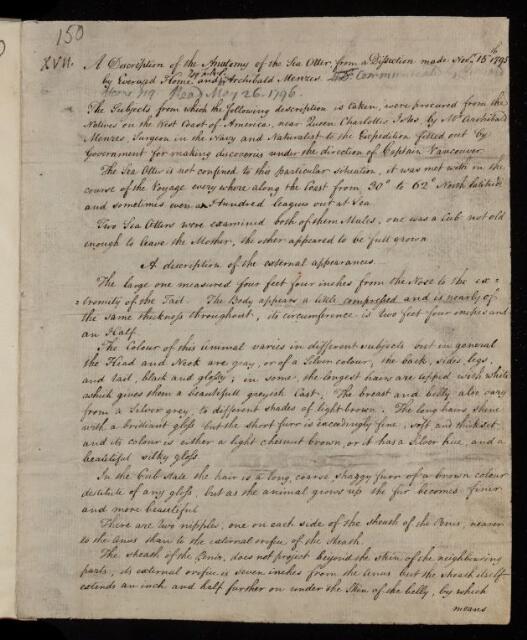 150
XVII. A Description of the Anatomy of the Sea Otter, from a Dissection made Novr. 15th 1795
by Everard Home Esqr. and Mr. Archibald Menzies.
Read May 26. 1796.
The Subjects from which the following description is taken, were procured from the
Natives on the West Coast of America, near Queen Charlottes Isles, by Mr. Archibald
Menzies, Surgeon in the Navy and Naturalist to the Expedition fitted out by
Government for making discoveries under the direction of Captain Vancouver.
The Sea Otter is not confined to this particular situation, it was met with in the
course of the Voyage every where along the Coast from 30° to 62° North Latitude
and sometimes even a Hundred leagues out at Sea.
Two Sea Otters were examined both of them Males, one was a Cub not old
enough to leave the Mother, the other appeared to be full grown
A description of the external appearances.
The large one measured four feet four inches from the Nose to the ex-
-tremity of the Tail. The Body appears a little compressed and is nearly of
the same thickness throughout, its circumference is two feet four inches and
an Half.
The Colour of this animal varies in different subjects but in general
the Head and Neck are gray, or of a Silver colour, the back, sides, legs,
and tail, black and glossy; in some the longest hairs are tipped with white
which gives them a beautifull greyish Cast. The breast and belly also vary
from a Silver grey, to different shades of light brown. The long hairs shine
with a brilliant gloss but the short furr is exceedingly fine, soft and thickset
and its colour is either a light chesnut brown, or it has a Silver hue, and a
beautiful silky gloss.
In the Cub State the hair is a long, coarse, shaggy furr of a brown colour
destitute of any gloss, but as the animal grows up the fur becomes finer
and more beautiful
There are two nipples, one on each side of the sheath of the Penis, nearer
to the Anus than to the external orifice of the sheath.
The sheath of the Penis, does not project beyond the skin of the neighbouring
parts, its external orifice is seven inches from the Anus but the sheath itself
extends an inch and half further on under the Skin of the belly, by which
means